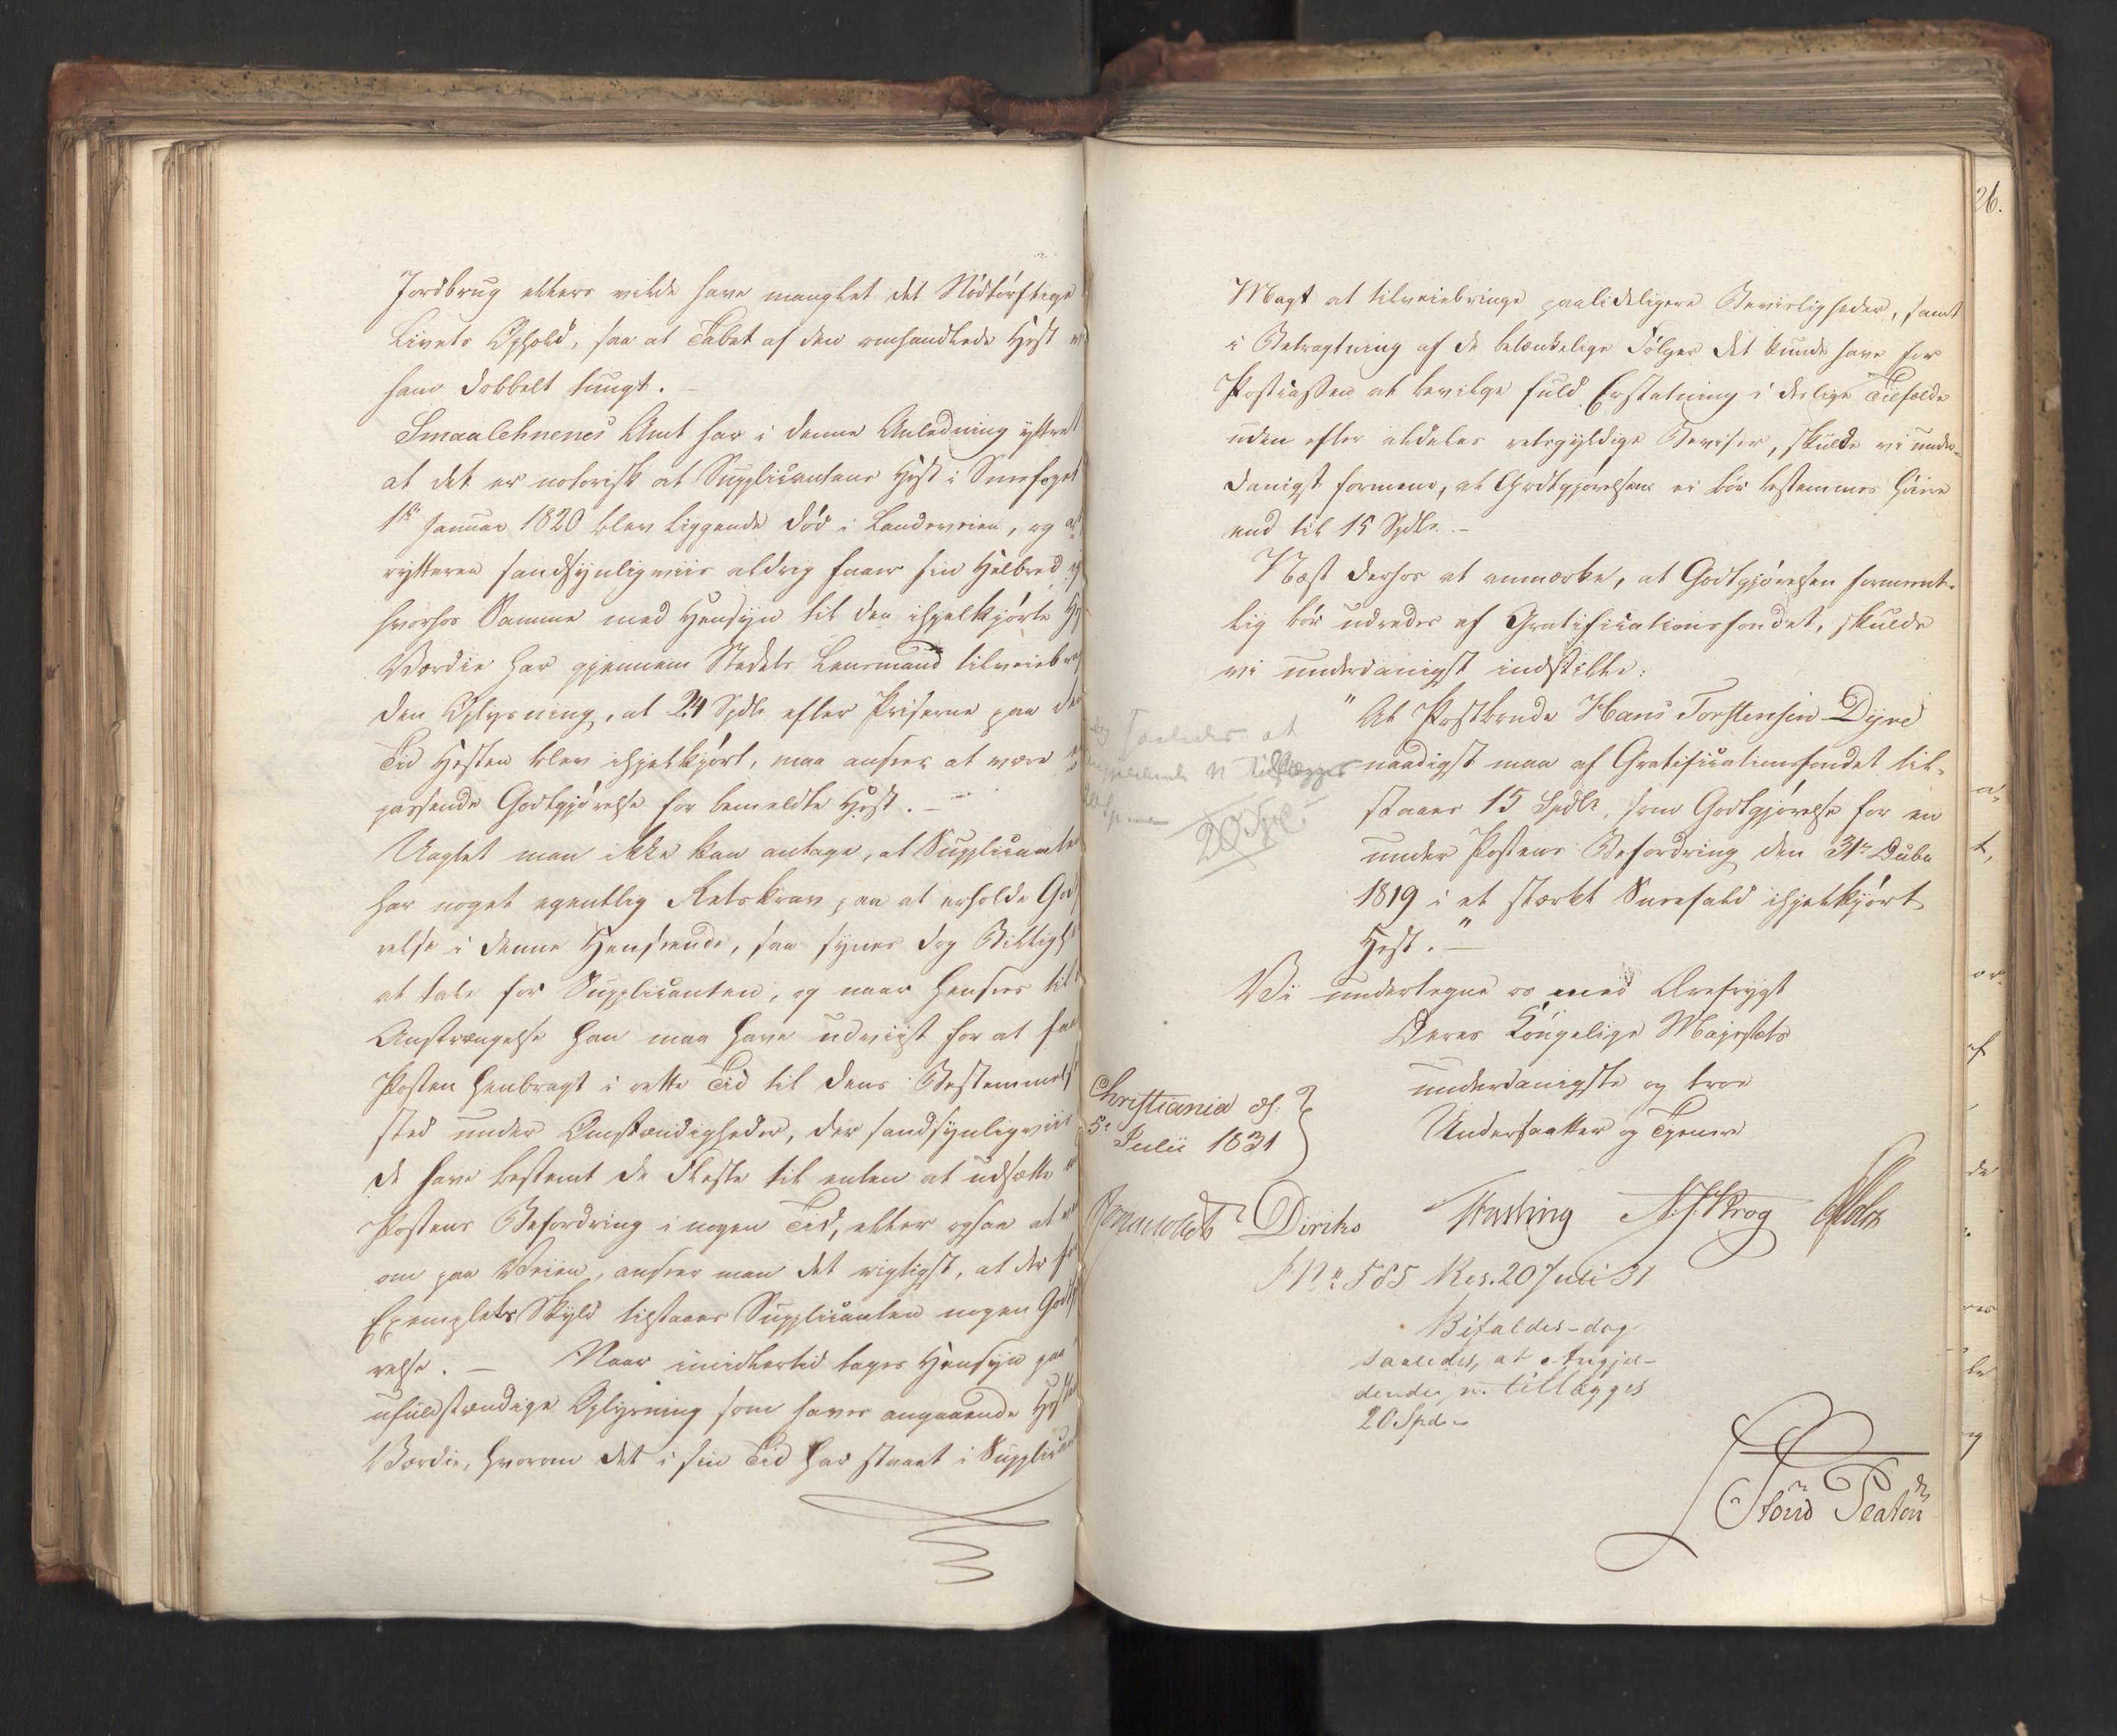 Jordbrug ellers vilde have manglet det Nødtørftige
Livets Ophold, saa at Tabet af den omhandlede Hest
ham dobbelt tungt. –
Smaalehnenes Amt har i denne Anledning yttret
at det er notorisk at Supplicantens Hest i Sneefoget
1ste Januar 1820 blev liggende død i Landeveien, og at
rytteren sandsynligviis aldrig faaer sin Helbred
hvorhos Samme med Hensyn til den ihjelkjørte
Værdie har gjennem Stedets Lensmand tilveiebragt
den Oplysning, at 24 Spdlr efter Priserne paa den
Tid Hesten blev ihjelkjørt, maa ansees at være
passende Godtgjørelse for bemeldte Hest. –
Uagtet man ikke kan antage, at Supplicanten
har noget egentlig Retskrav paa at erholde Godtgjø
relse i denne Henseende, saa synes dog Billighed
at tale for Supplicanten, og naar henses til
Anstrængelse han maa have udviist for at faae
Posten henbragt i rette Tid til dens Bestemmelses
sted under Omstændigheder, der sandsynligviis
de have bestemt de Fleste til enten at udsætte
Postens Befordring i nogen Tid, eller ogsaa at
om paa Veien, anseer man det rigtigst, at der for
Exemplets Skyld tilstaaes Supplicanten nogen Godtgjø
relse. – Naar imidlertid tages Hensyn paa
ufuldstændige Oplysning som haves angaaende Hestens
Værdie, hvorom det i sin Tid har staaet i Supplicantens
26.
Magt at tilveiebringe paalideligere Beviisligheder, samt
i Betragtning af de betænkelige Følger det kunde have for
Postcassen at bevilge fuld Erstatning i deslige Tilfælde
uden efter aldeles retsgyldige Beviser, skulde vi under-
danigst formene, at Godtgjørelsen ei bør bestemmes høiere
end til 15 Spdlr. –
Næst derhos at anmærke, at Godtgjørelsen forment-
lig bør udredes af Gratificationsfondet, skulde
vi underdanigst indstille:
"At Postbonde Hans Torstensen Dyre
naadigst maa af Gratificationsfondet til-
staaes 15 Spdlr, som Godtgjørelse for en
under Postens Befordring den 31te Decbr
1819 i et stærkt Sneefald ihjelkjørt
Hest." –
dog saaledes at
angjeldende n tillægges
20 Spd
Vi undertegne os med Ærefrygt
Deres Kongelige Majestæts
underdanigste og troe
Undersaatter og Tjenere
Christiania d:
5te Julii 1831
Diriks Fasting Krog Holst
No 585 Res. 20 Juli 31
Bifaldes – dog
saaledes, at Angjel-
dende n. tillægges
20 Spd.